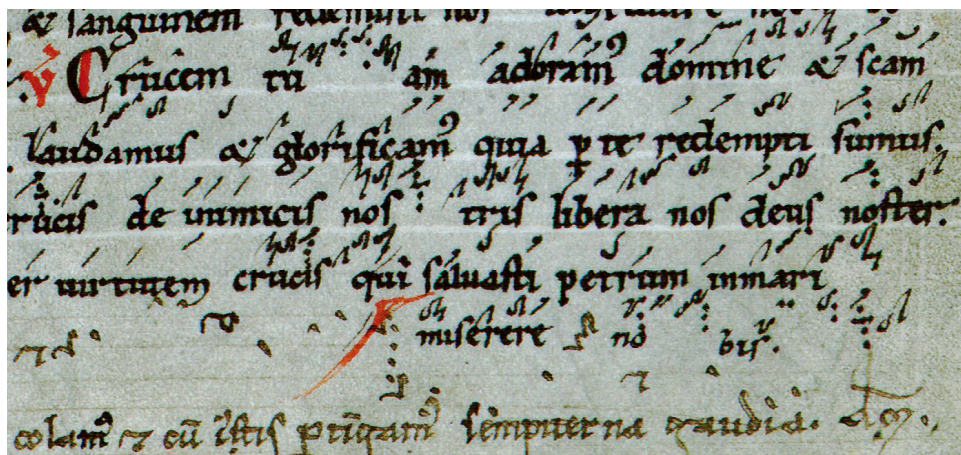 & sanguinem redemisti nos
V Crucem tu am adoram' domine & scam
laudamus & glorificam' quia p te redempti sumus.
rucis de inimicis nos tris libera nos deus noster.
er uirtutem crucis qui saluasti petrum inmari
miserere no bis.
colam' & cū istis sempiterna gaudia.